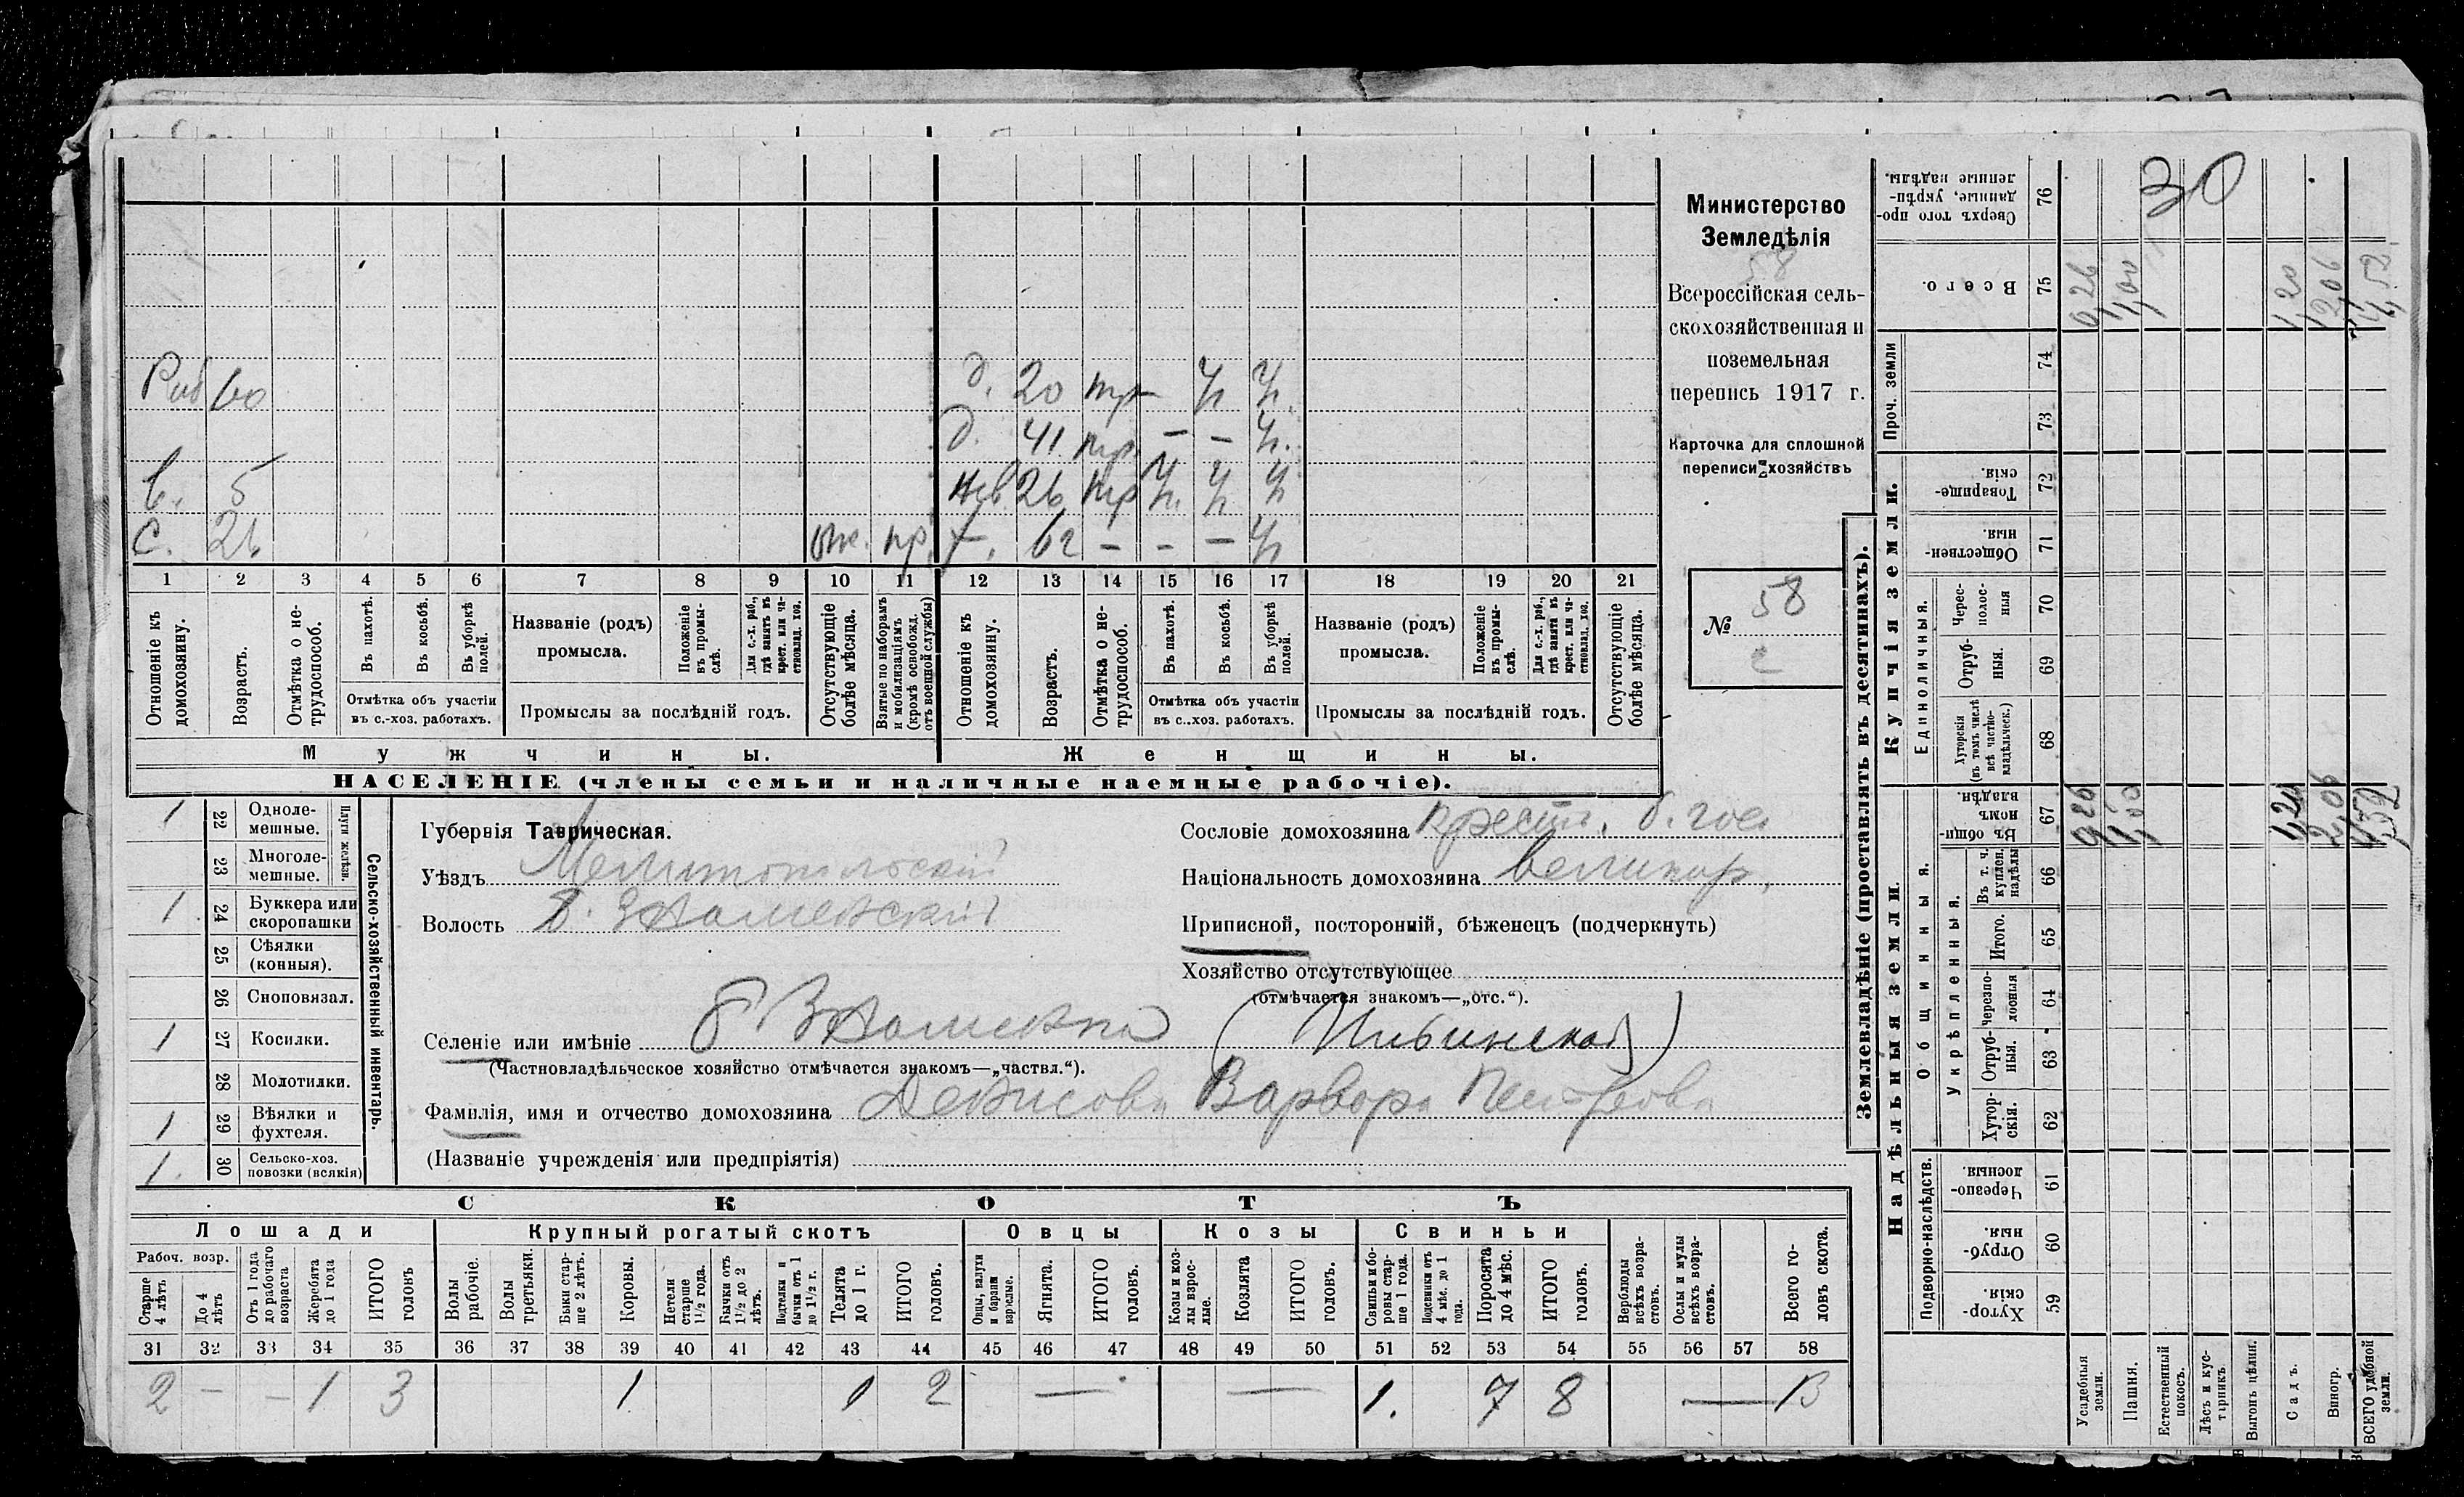 30
Министерство
Земледѣлія
58
Всероссійская сель-
скохозяйственная и
поземельная
перепись 1917 г.
Карточка для сплошной
переписи хозяйствъ
№ 58
Раб 60 д. 20 тр — Ч. Ч.
д. 41 — — Ч.
в. 5 26 Ч. Ч. Ч
С. 26 62 — — — Ч
1 2 3 4 5 6 7 8 9 10 11 12 13 14 15 16 17 18 19 20 21
Отношеніе къ домохозяину.
Возрастъ.
Отмѣтка о не-трудоспособ.
Въ пахотѣ.
Въ косьбѣ.
Въ уборкѣ полей.
Отмѣтка объ участіи въ с.-хоз. работахъ.
Названіе (родъ) промысла.
Положеніе въ промы-слѣ.
Для с.-х. раб., гдѣ занятъ въ крест. или ча-стновлад. хоз.
Промыслы за послѣдній годъ.
Отсутствующіе болѣе мѣсяца.
Взятые по наборамъ и мобилизаціямъ (кромѣ освобожд. отъ военной службы)
Отношеніе къ домохозяину.
Возрастъ.
Отмѣтка о не-трудоспособ.
Въ пахотѣ.
Въ косьбѣ.
Въ уборкѣ полей.
Отмѣтка объ участіи въ с..хоз. работахъ.
Названіе (родъ) промысла.
Положеніе въ промы-слѣ.
Для с.-х. раб., гдѣ занята въ крест. или ча-стновлад. хоз.
Промыслы за послѣдній годъ.
Отсутствующіе болѣе мѣсяца.
Мужчины. Женщины.
НАСЕЛЕНІЕ (члены семьи и наличные наемные рабочіе).
Сельско-хозяйственный инвентарь.
Плуги желѣзн.
1 22 Одноле-мешные.
23 Многоле-мешные.
1. 24 Буккера или скоропашки
25 Сѣялки (конныя).
26 Сноповязал.
1 27 Косилки.
28 Молотилки.
1 29 Вѣялки и фухтеля.
1. 30 Сельско-хоз. повозки (всякія)
Губернія Таврическая.
Уѣздъ Мелитопольскій
Волость Б. Знаменскій
Селеніе или имѣніе Б Знаменка
(Частновладѣльческое хозяйство отмѣчается знакомъ—„частвл.“).
Фамилія, имя и отчество домохозяина Денисова Варвара Петрова
(Названіе учрежденія или предпріятія)
Сословіе домохозяина крест. б. гос
Національность домохозяина великор.
Приписной, посторонній, бѣженецъ (подчеркнуть)
Хозяйство отсутствующее
(отмѣчается знакомъ—„отс.“).
СКОТЪ
Лошади Крупный рогатый скотъ Овцы Козы Свиньи
Рабоч. возр.
Старше 4 лѣтъ
До 4 лѣтъ
Отъ 1 года до рабочаго возраста
Жеребята до 1 года
ИТОГО головъ
Волы рабочіе.
Волы третьяки.
Быки стар-ше 2 лѣтъ.
Коровы.
Нетели старше 1½ года.
Бычки отъ 1½ до 2 лѣтъ.
Подтелки и бычки отъ 1 до 1½ г.
Телята до 1 г.
ИТОГО головъ.
Овцы, валухи и бараны взрослые.
Ягнята.
ИТОГО головъ.
Козы и коз-лы взрос-лые.
Козлята
ИТОГО головъ.
Свиньи и бо-ровы стар-ше 1 года.
Подсвинки отъ 4 мѣс. до 1 года.
Поросята до 4 мѣс.
ИТОГО головъ.
Верблюды всѣхъ возра-стовъ.
Ослы и мулы всѣхъ возра-стовъ.
Всего го-ловъ скота.
31 32 33 34 35 36 37 38 39 40 41 42 43 44 45 46 47 48 49 50 51 52 53 54 55 56 57 58
2 — — 1 3 1 1 2 — — 1. 7 8 — 13
Землевладѣніе (проставлять въ десятинахъ).
Надѣльныя земли.
Купчія земли.
Проч. земли
Подворно-наслѣдств.
Общинныя.
Укрѣпленныя.
Единоличныя.
Хутор-скія. 59
Отруб-ныя. 60
Черезпо-лосныя 61
Хутор-скія. 62
Отруб-ныя. 63
Черезпо-лосныя 64
Итого. 65
Въ т. ч. куплен. надѣлы 66
Въ общин-номъ владѣн. 67
Хуторскія (въ томъ числѣ всѣ частно-владѣльческ.) 68
Отруб-ныя. 69
Черес-полос-ныя 70
Обществен-ныя. 71
Товарище-скія. 72
73
74
Всего. 75
Сверхъ того про-данные, укрѣп-ленные надѣлы. 76
Усадебныя земли. 0,26 0,26
Пашня. 1,00 1,00
Естественный покосъ.
Лѣсъ и кус-тарникъ.
Выгонъ цѣлин.
Садъ. 1,20 1,20
Виногр. 2,06 2,06
ВСЕГО удобной земли. 4,52 4,52